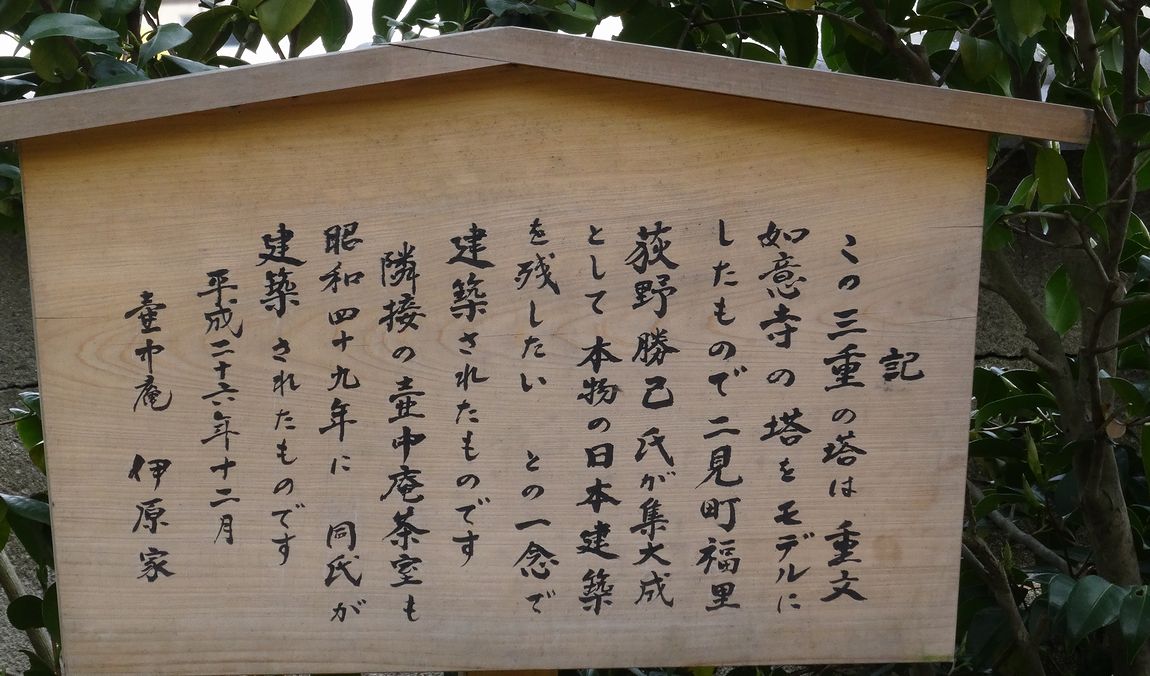 記
この三重の塔は 重文
如意寺の 塔をモデルに
したもので 二見町福里
荻野勝己氏が集大成
として 本物の日本建築
を残したい との一念で
建築されたものです
隣接の壷中庵茶室も
昭和四十九年に 同氏が
建築されたものです
平成二十六年十二月
壷中庵 伊原家